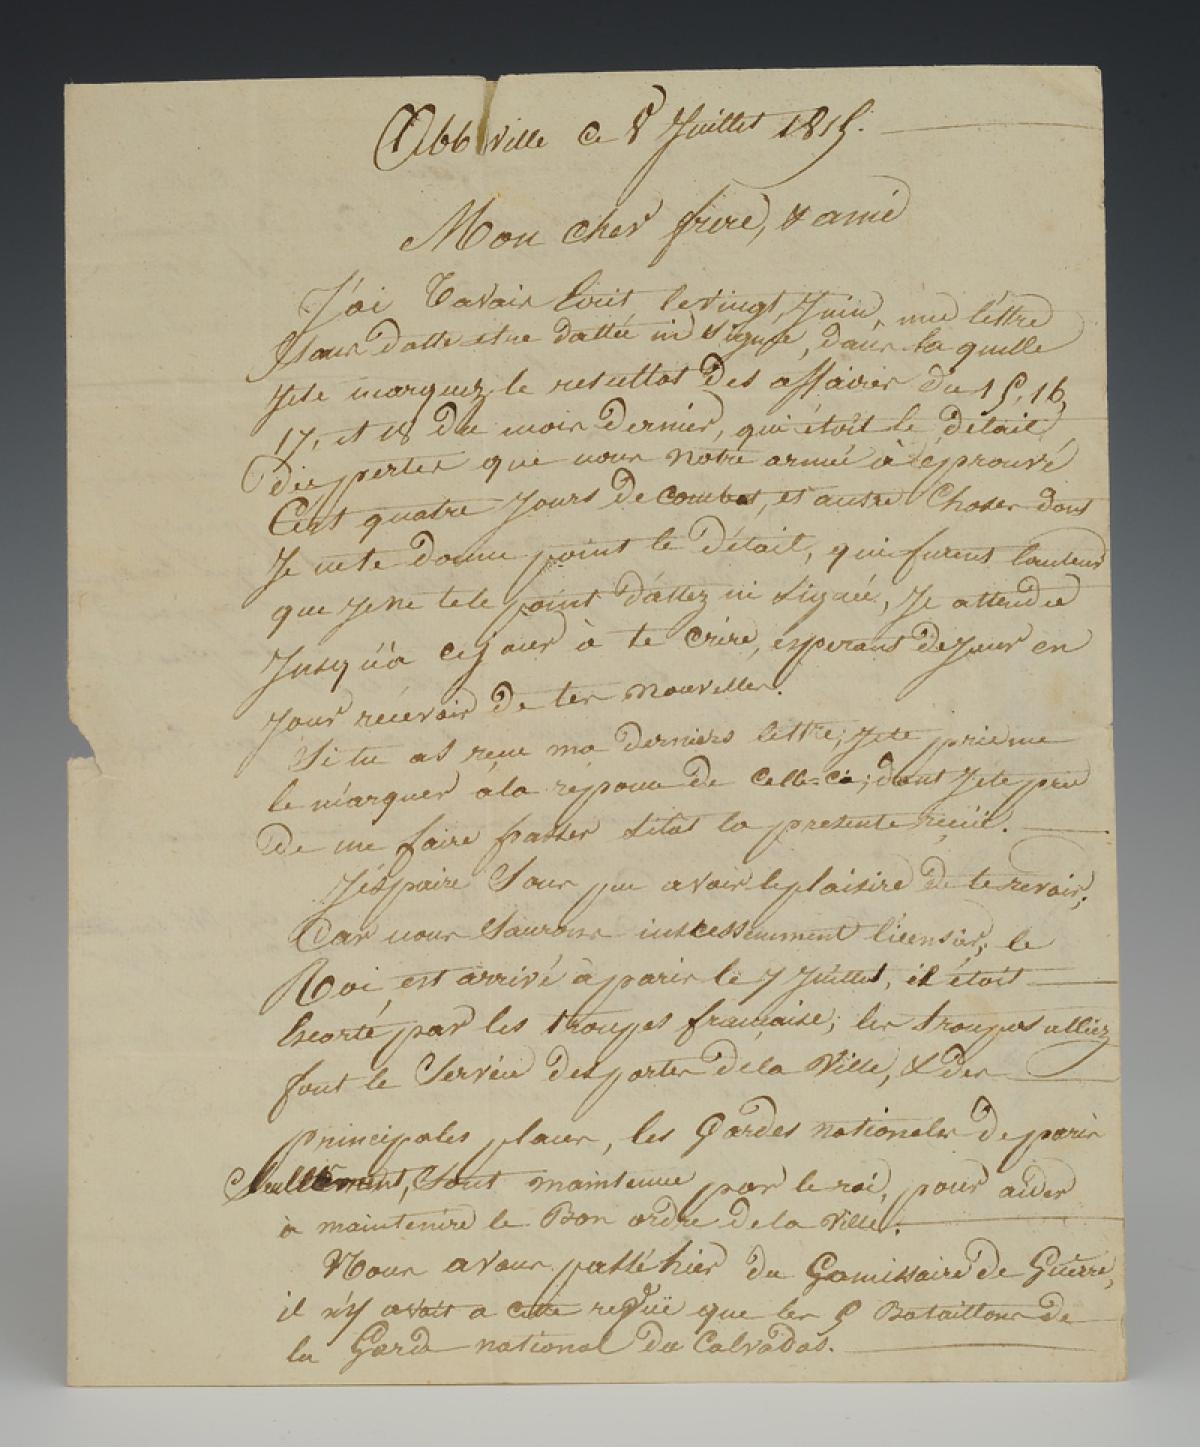 Abbville ce 8 Juillet 1815.
Mon cher frère, & ami
J'ai t'avair Ecrit le vingt Juin, une léttre
Sans datte etre dattée ni Signée, dans la quelle
Jete marquez le resultat des affaires du 15, 16,
17, et 18 du mois dernier, qui étoit le détail
des pertes que nous notre armée à éprouvé
Cest quatre Jours de combat, et autre Choses dont
Je nete donne point le détail, qui furent l'auteur
que Jene tele point dattez ni Signée, Je attendue
Jusqu'à cejour à te crire, esperant dejour en
Jour récevoir de tes nouvelles.
Si tu as reçue ma derniers lettre, Jete prie me
le marquer àla réponse de celle=ci; dont Jete prie
de me faire passer sitôt la présente reçüe.
J'éspaire Sous peu avoir leplaisire de te revoir,
Car nous Saurons incessemment licensier, le
Roi est arrivé à paris le 7 Juillet, il étoit
Escorté par les troupes francaise; les troupes alliez
font le Service desportes déla Ville, & des
principales places, les Gardes nationales de paris
Seullement, Sont maintenue par le roi, pour aider
à maintenire le Bon ordre de la ville.
Nous avons passé hier du Comissaire de Guerre,
il n'y avait a cette revüe que les 5 Bataillons de
la Garde national du Calvados.